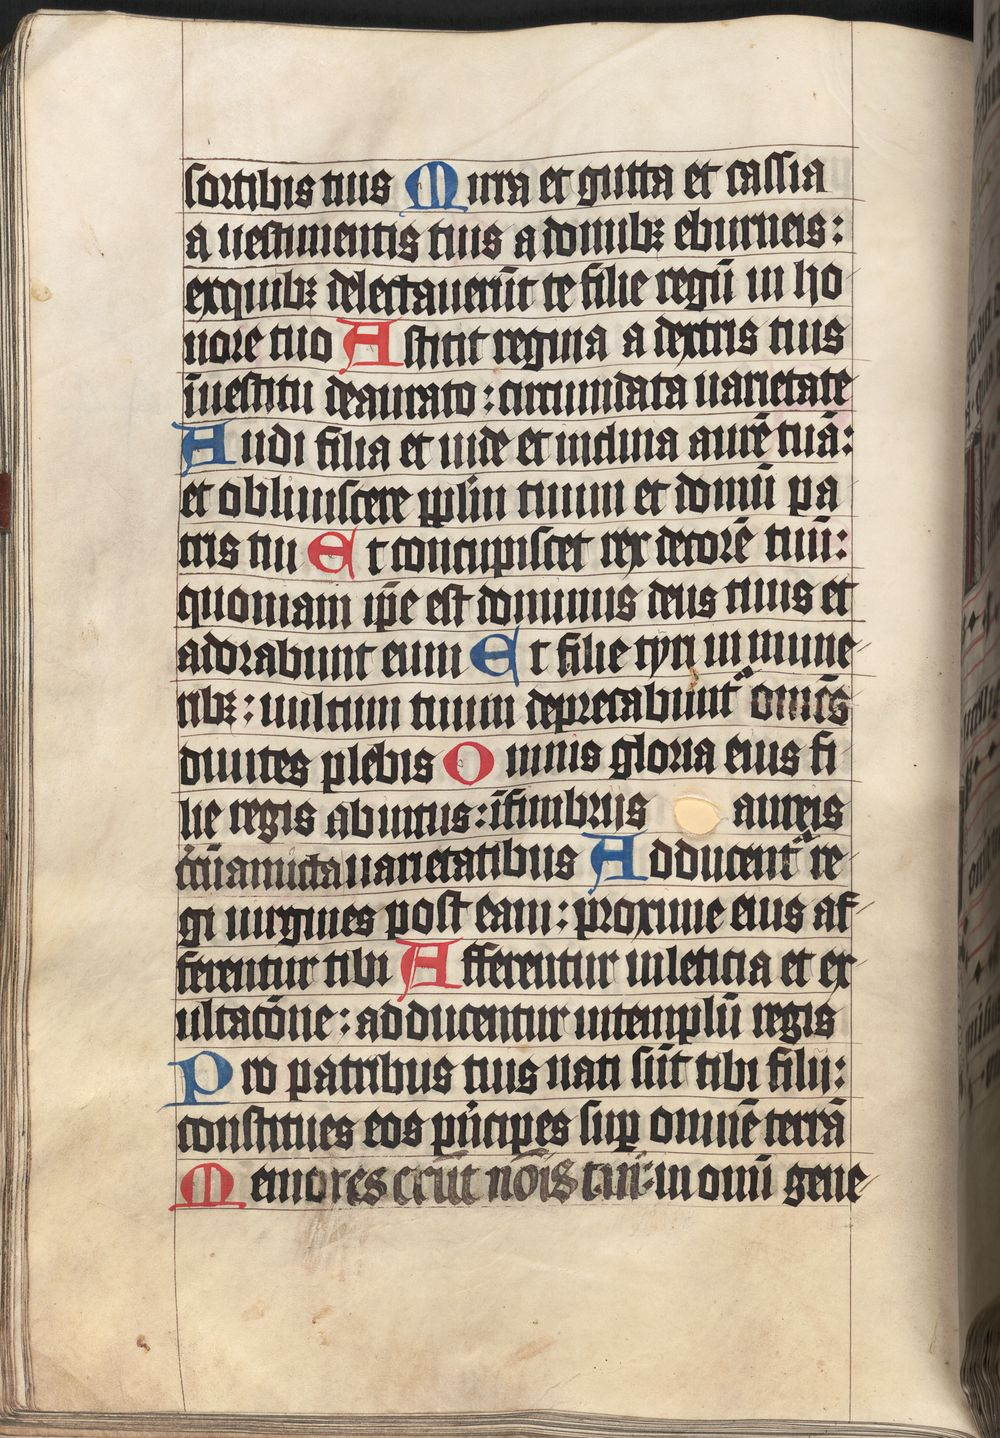 sortibus tuis Mirra et gutta et cassia
a uestimentis tuis a domibꝫ eburneis:
exquibꝫ delectauerūt te filie regū in ho
nore tuo Astitit regina a dextris tuis
īuestitu deaurato: circumdata uarietate
Audi filia et uide et inclina aurē tuā:
et obliuiscere ppl̄m tuum et domū pa
tris tui Et concupiscet rex decorē tuū:
quoniam ip̄e est dominus deus tuus et
adorabunt eum Et filie tyri in mune
ribꝫ: uultum tuum deprecabunt᷑ omn̄es
diuites plebis Omnis gloria eius fi
lie regis abintus: ī fimbriis aureis
circūamicta uarietatibus Adducent᷑ re
gi uirgines post eam: proxime eius af
ferentur tibi Afferentur inleticia et ex
ultacōne: adducentur intemplū regis
Pro patribus tuis nati sūt tibi filii:
constitues eos pͥncipes suꝑ omnē terrā
Memores erūt nōis tui: in omī gene